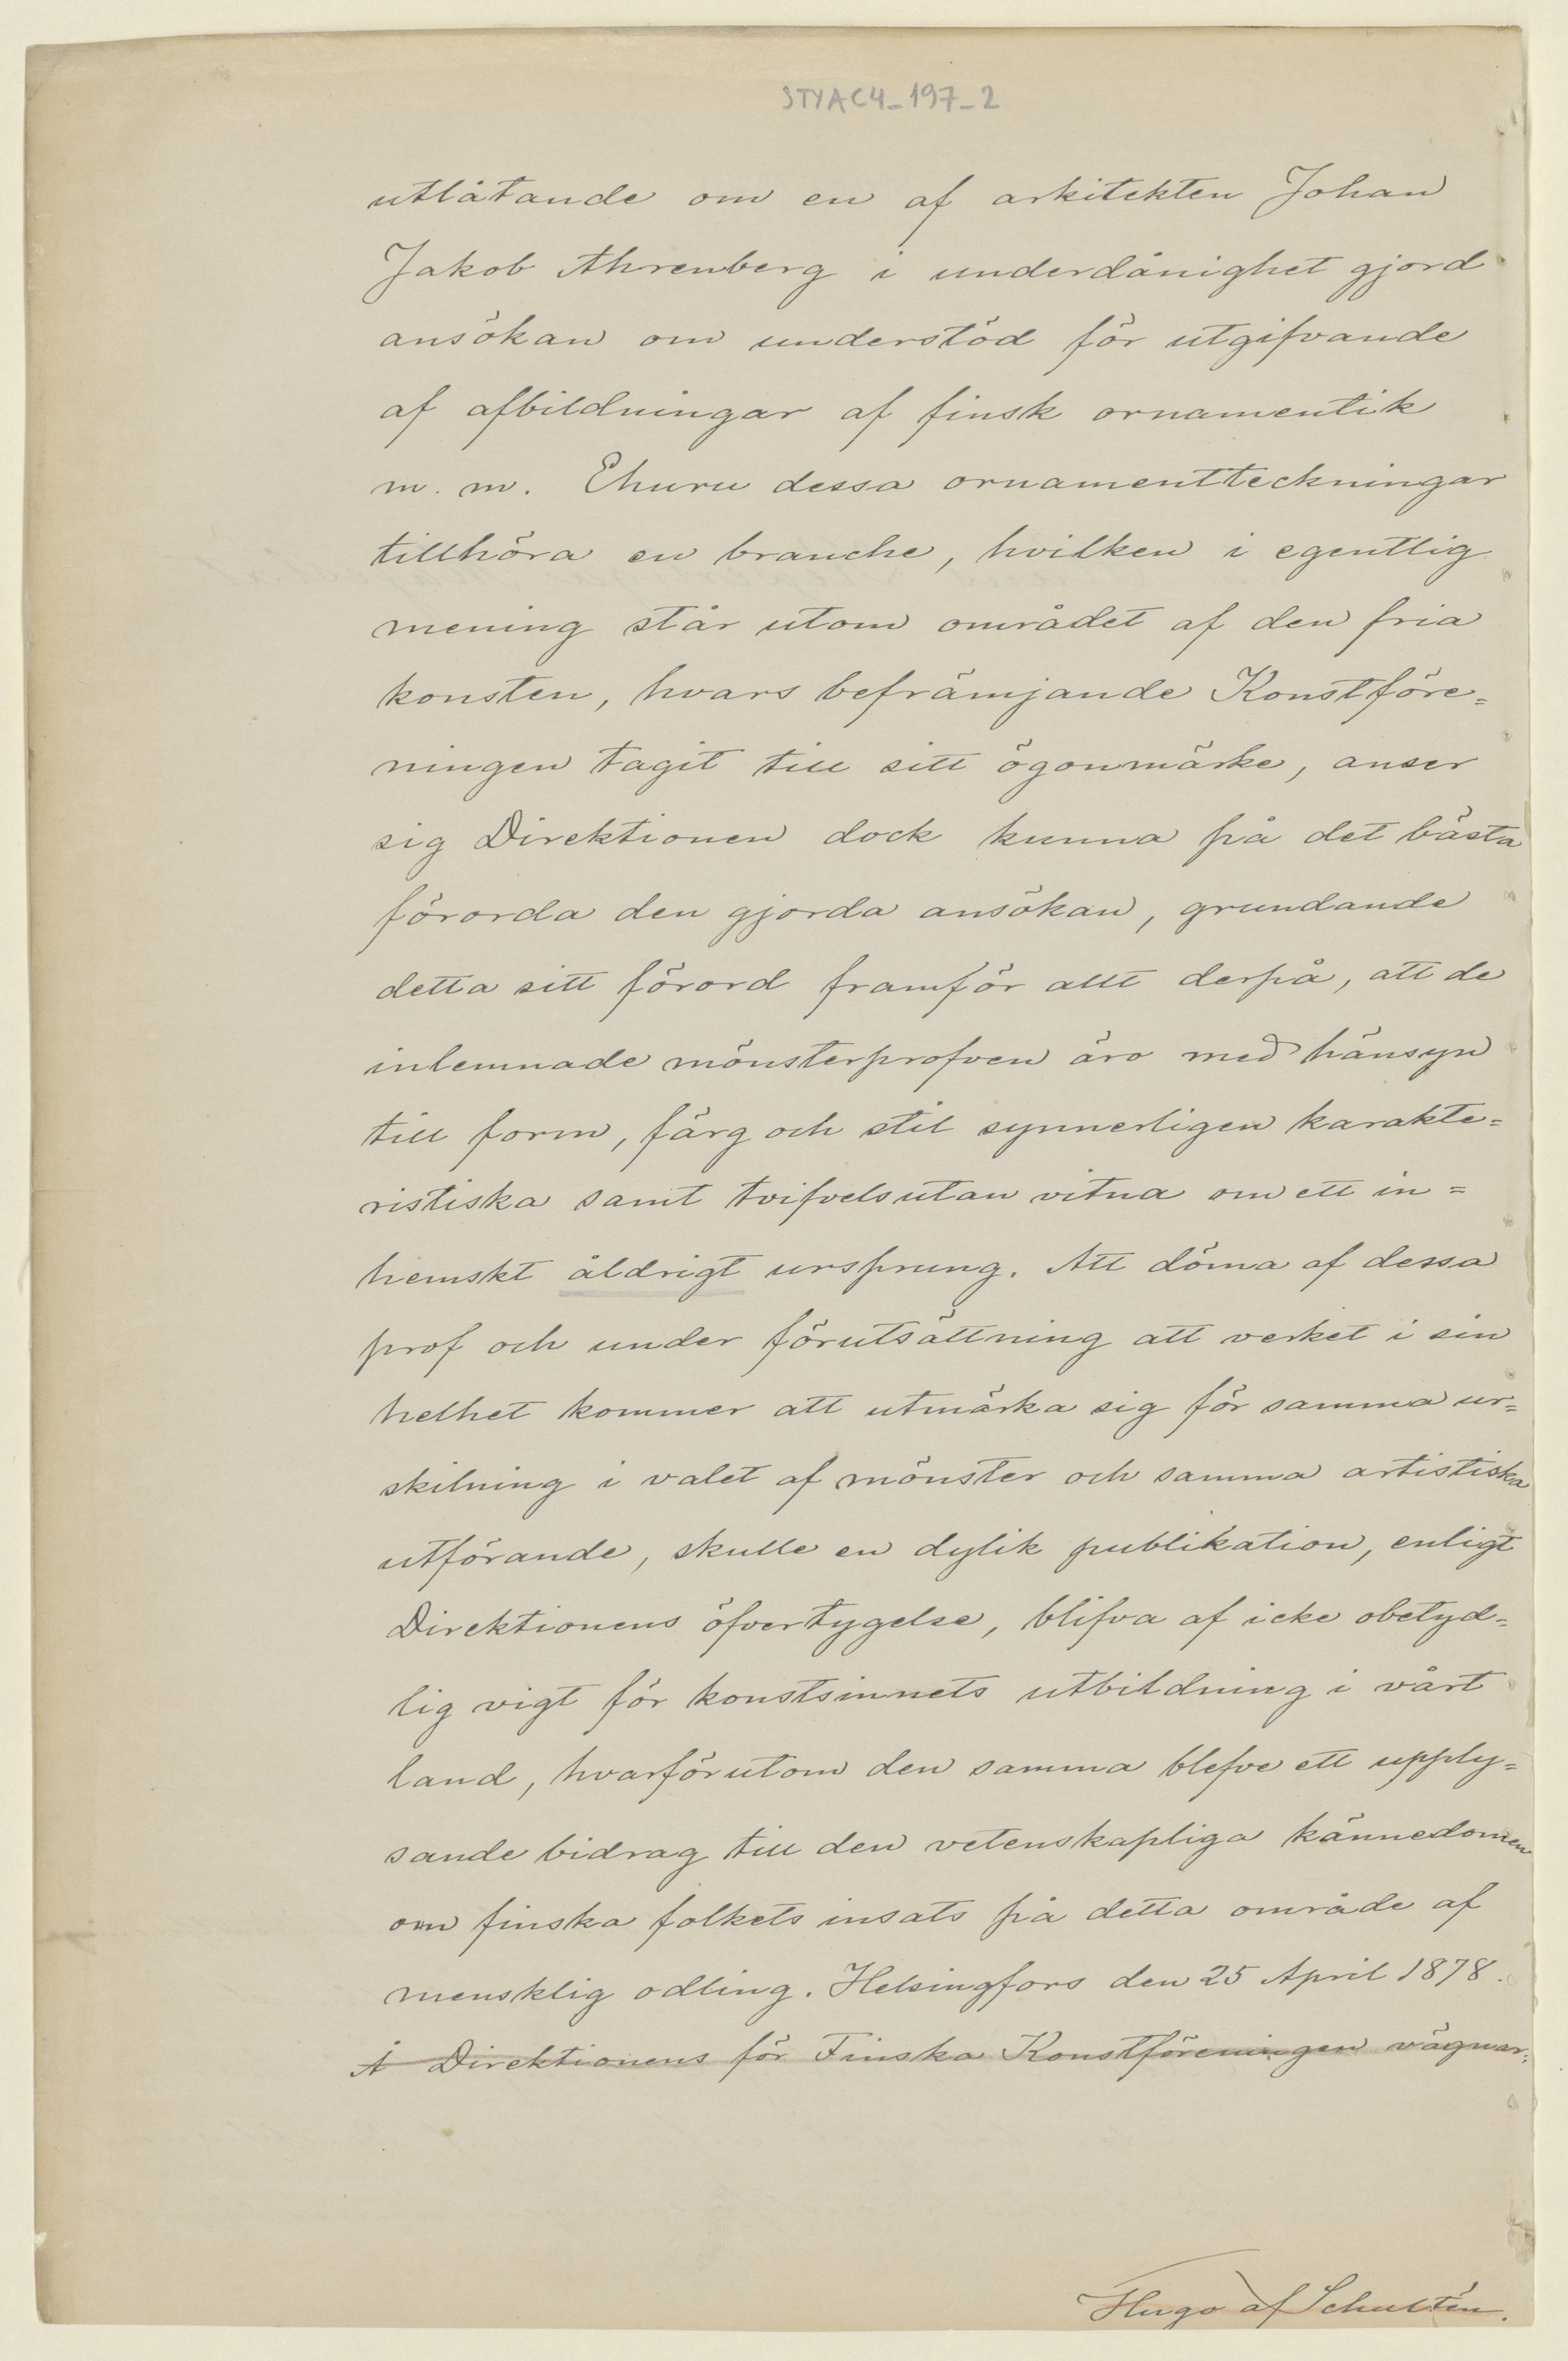 STYAC4_197_2
utlåtande om en af arkitekten Johan
Jakob Ahrenberg i underdånighet gjord
ansökan om understöd för utgifvande
af afbildningar af finsk ornamentik
m. m. Ehuru dessa ornamentteckningar
tillhöra en branche, hvilken i egentlig
mening står utom området af den fria
konsten, hvars befrämjande Konstföre=
ningen tagit till sitt ögonmärke, anser
sig Direktionen dock kunna på det bästa
förorda den gjorda ansökan, grundande
detta sitt förord framför allt derpå, att de
inlemnade mönsterprofven äro med hänsyn
till form, färg och stil synnerligen karakte=
ristiska samt tvifvelsutan vitna om ett in=
hemskt åldrigt ursprung. Att döma af dessa
prof och under förutsättning att verket i sin
helhet kommer att utmärka sig för samma ur=
skilning i valet af mönster och samma artistiska
utförande, skulle en dylik publikation, enligt
Direktionens öfvertygelse, blifva af icke obetyd=
lig vigt för konstsinnets utbildning i vårt
land, hvarförutom den samma blefve ett upply=
sande bidrag till den vetenskapliga kännedomen
om finska folkets insats på detta område af
mensklig odling. Helsingfors den 25 April 1878.
Å Direktionens för Finska Konstföreningen vägnar:
Hugo af Schultén.